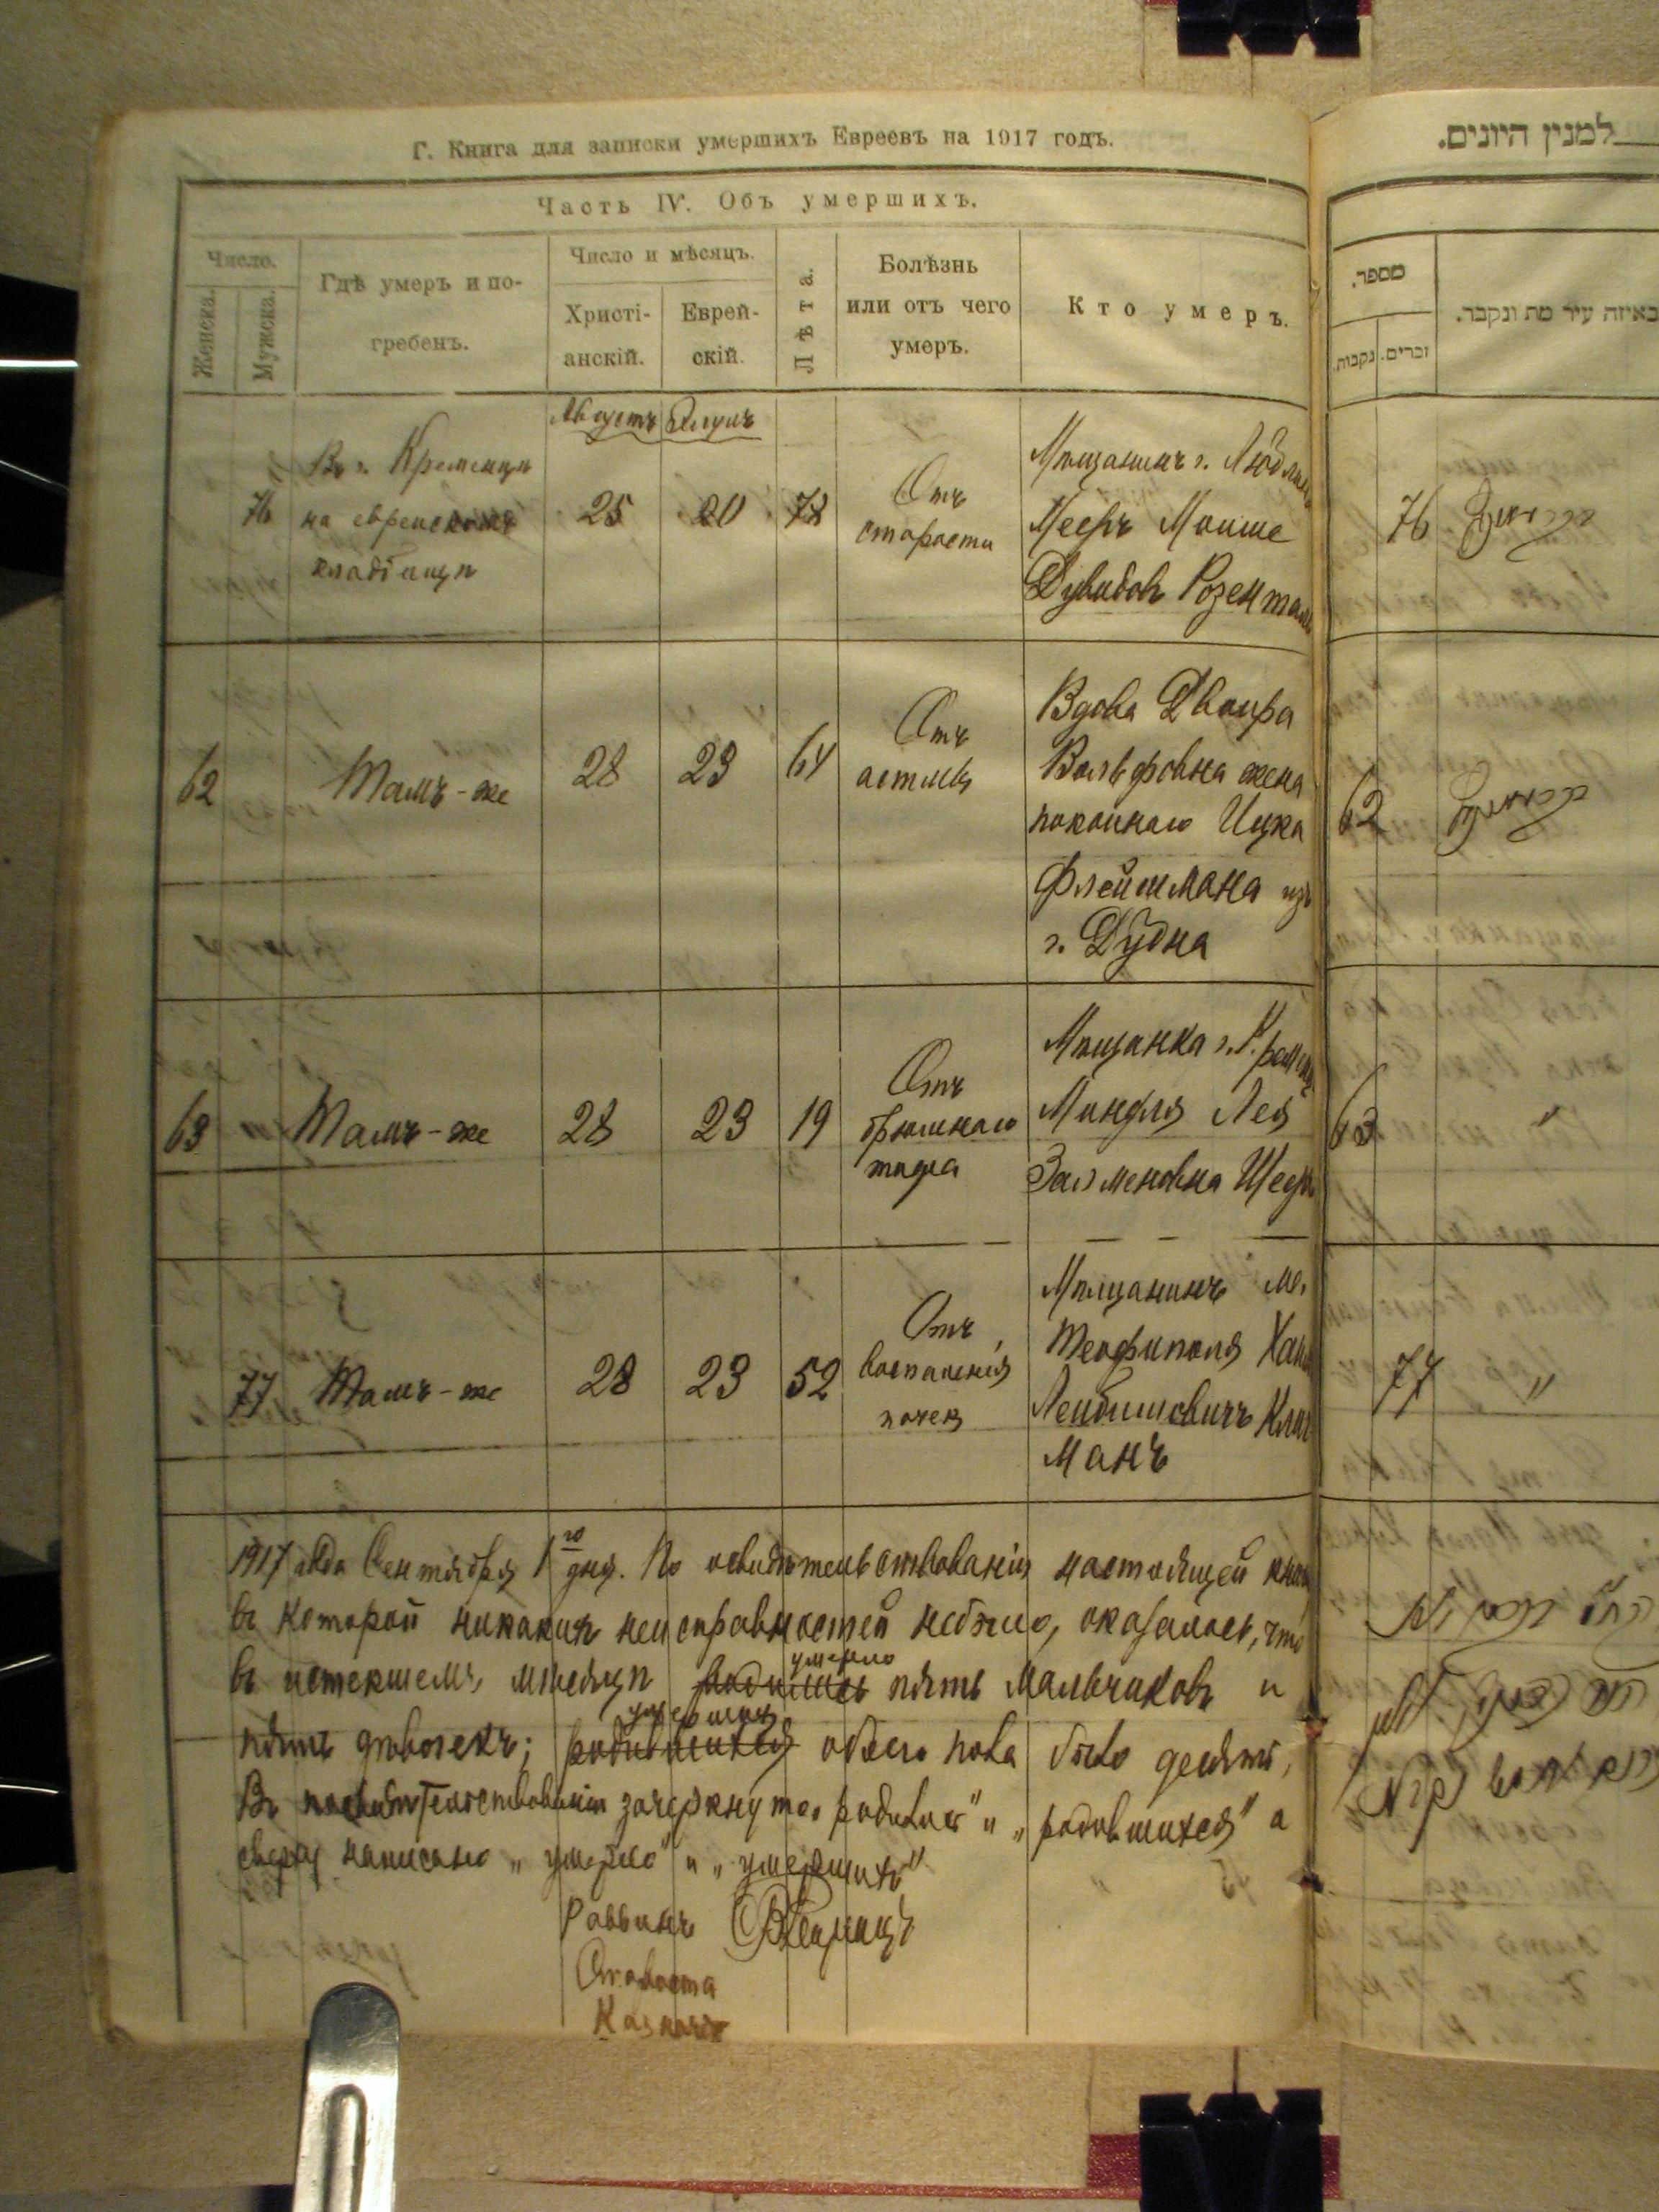 Г. Книга для записки умершихъ Евреевъ на 1917 годъ.
Часть IV. Объ умершихъ.
Число.
Женска.
Мужска.
Гдѣ умеръ и по-
гребенъ.
Число и мѣсяцъ.
Христі-
анскій.
Еврей-
скій.
Лѣта.
Болѣзнь
или отъ чего
умеръ.
Кто умеръ.
Августъ Элулъ
76
Въ г. Кременцѣ
на еврейскомъ
кладбищѣ
25
20
78
Отъ
старости
Мѣщанинъ г.
Мееръ Моише
Дувидовъ Розенталь
62
Тамъ-же
28
23
64
Отъ
астмы
Вдова Двойра
Вольфовна жена
покойнаго Ицка
Флейшмана изъ
г. Дубна
63
Тамъ-же
28
23
19
Отъ
брюшнаго
тифа
Мѣщанка г.
Миндля Лея
Залмановна
77
Тамъ-же
28
23
52
Отъ
воспаленія
почекъ
Мѣщанинъ м.
Теофиполя
Лейбишовичъ
манъ
1917 года Сентября 1го дня. По освидѣтельствованіи настоящей книги
въ которой никакихъ неисправностей небыло, оказалось, что
въ истекшемъ мѣсяцѣ родилось умерло пять мальчиковъ и
пять дѣвочекъ; родившихся умершихъ обоего пола было десять,
Въ зачеркнуто "родилось" и "родившихся" а
сверху написано "умерло" и "умершихъ"
Раввинъ
Староста
Казначей
למנין היונים.
מספר.
נקבות.
זכרים.
באיזה עיר מת ונקבר.
76
62
63
77
"